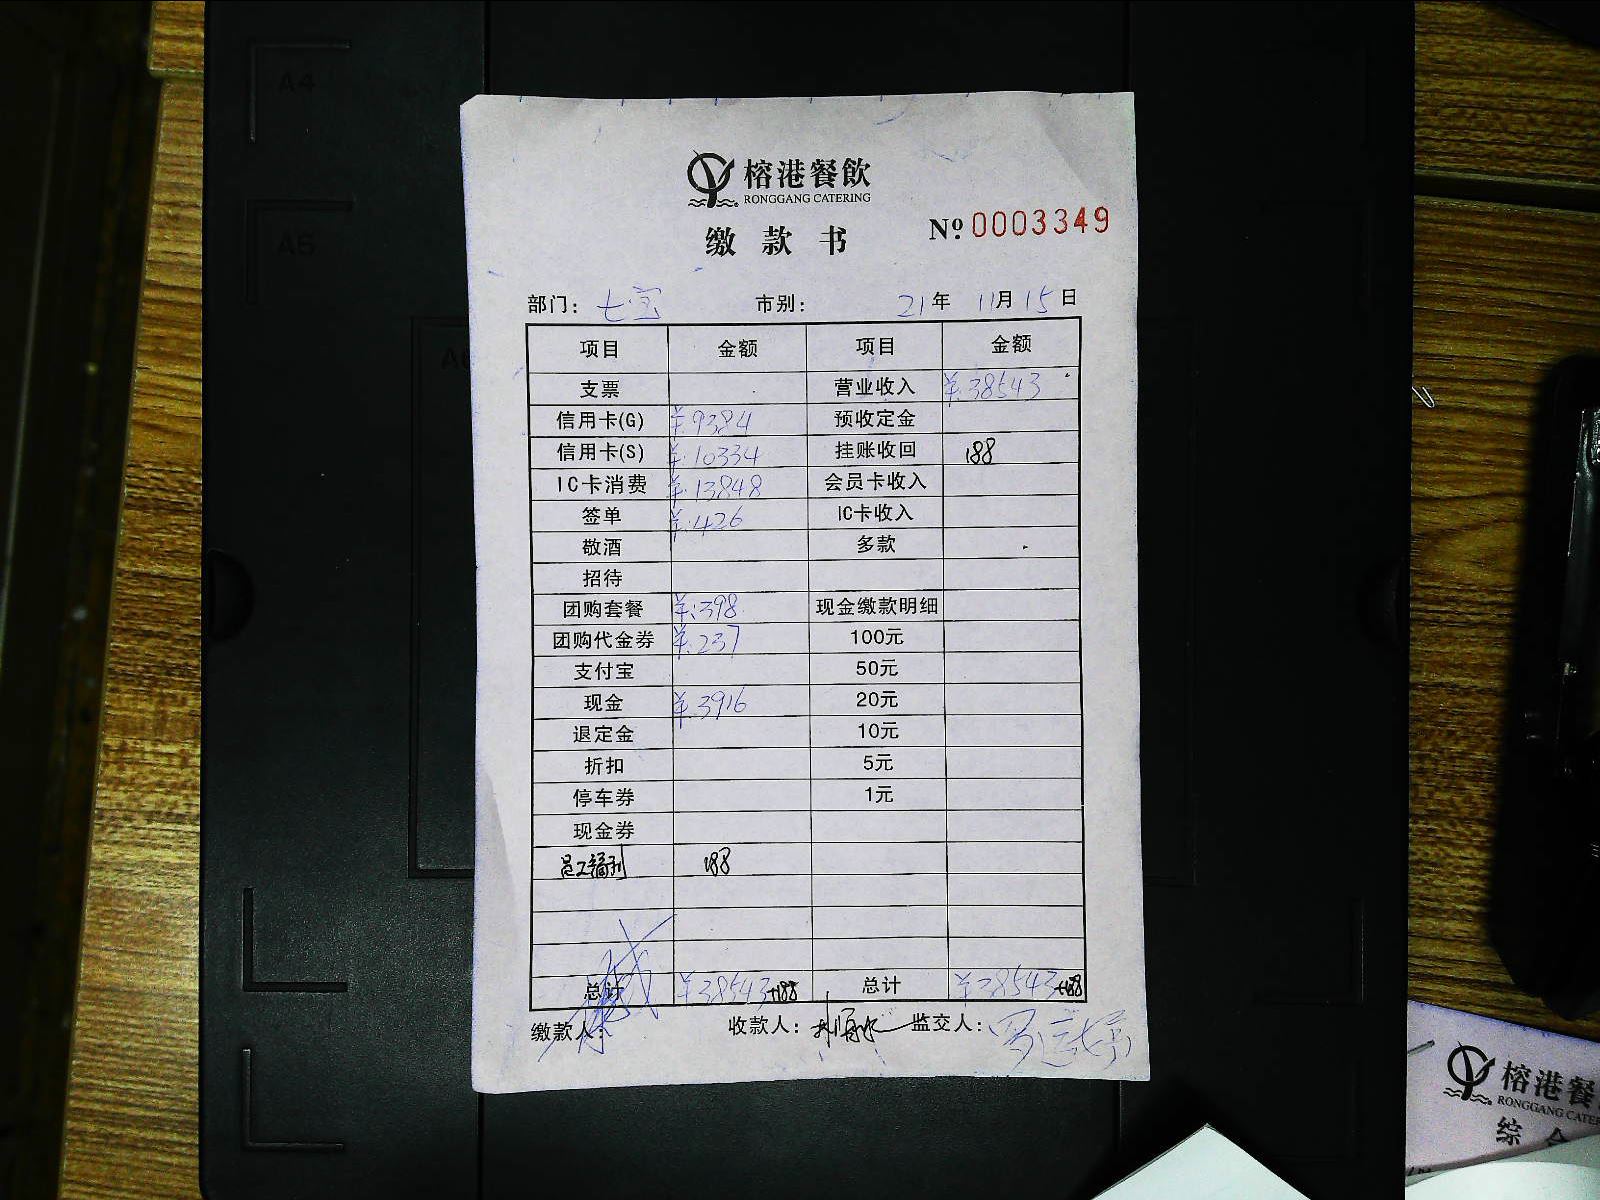 A4
A5
A6
榕港餐飲
RONGGANG CATERING
缴款书
Nº 0003349
部门: 七宝 市别: 21年 11月 15日
项目 金额 项目 金额
支票 营业收入 ¥:38543
信用卡(G) ¥:9384 预收定金
信用卡(S) ¥:10334 挂账收回 188
IC卡消费 ¥:13848 会员卡收入
签单 ¥:426 IC卡收入
敬酒 多款
招待
团购套餐 ¥:398 现金缴款明细
团购代金券 ¥:237 100元
支付宝 50元
现金 ¥:3916 20元
退定金 10元
折扣 5元
停车券 1元
现金券
员工福利 188
总计 ¥38543+188 总计 ¥38543+188
缴款人: 收款人: 监交人:
榕港餐
RONGGANG CATE
综 合